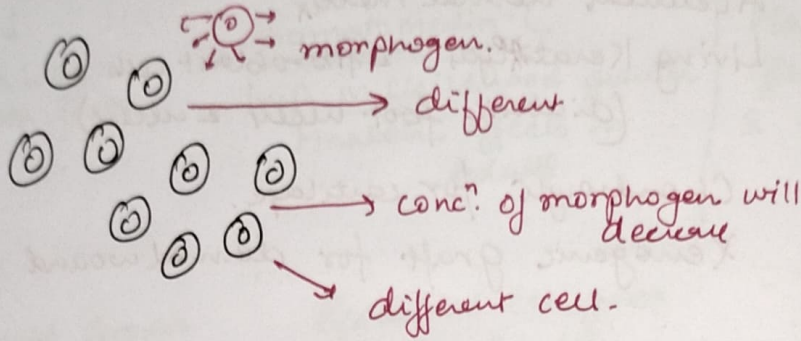 morphogen.
different
concⁿ. of morphogen will
decrease
different cell.